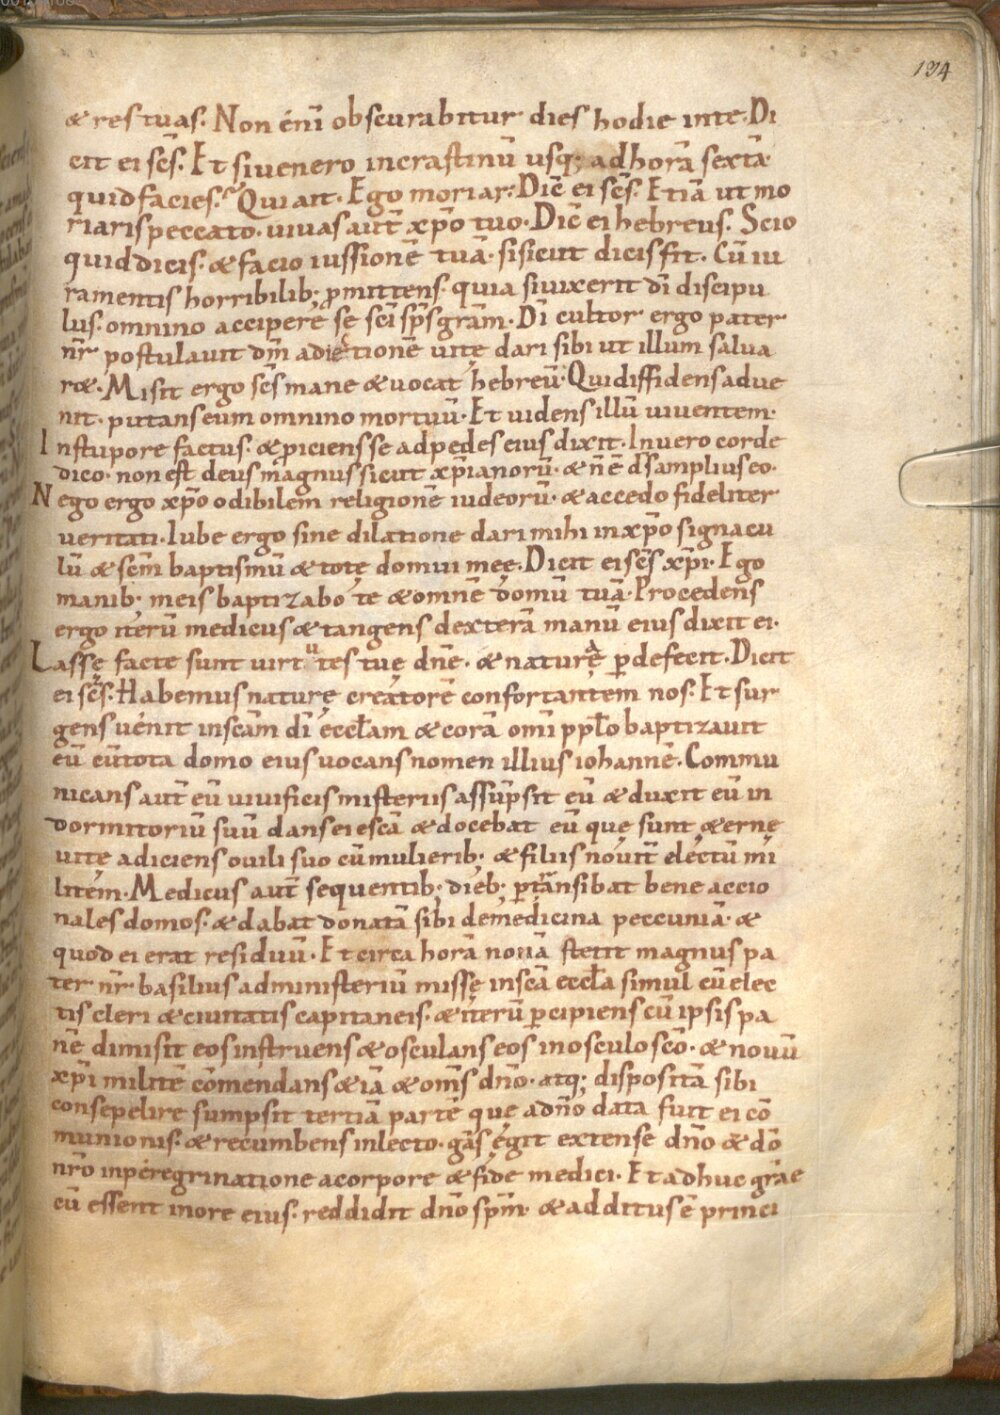 134
& res tuas. Non eni͞ obscurabitur dies hodie inte. Di
cit ei sc͞s. Et siuenero incrastinū usq; adhorā sextā
quid facies? Qui ait. Ego moriar. Dic̄ ei sc͞s. Etiā ut mo
riaris peccato. uiuas aut̄ xp̄o tuo. Dic̄ ei hebreus. Scio
quid dicis. & facio iussionē tuā. si sicut dicis fit. Cū iu
ramentis horribilib; p̱mittens. quia si uixerit dī discipu
lus. omnino accipere se sc̄i sp̄s grām. Dī cultor ergo pater
nr̄ postulauit dm̄ adiectionē uitę dari sibi ut illum salua
r&. Misit ergo sc̄s mane & uocat hebreū. Qui diffidens adue
nit. putans eum omnino mortuū. Et uidens illū uiuentem.
Instupore factus. & piciens se ad pedes eius dixit. In uero corde
dico. non est deus magnus sicut xp̄ianorū. & n̄ ē ds̄ amplius eo.
Nego ergo xp̄o odibilem religionē iudeorū. & accedo fideliter
ueritati. Iube ergo sine dilatione dari mihi in xp̄o signacu
lū & sc̄m baptismū & totę domui meę. Dicit ei sc̄s xp̄i. Ego
manib; meis baptizabo te & omnē domū tuā. Procedens
ergo iterū medicus & tangens dexterā manū eius dixit ei.
Lassę factę sunt uirtutes tuę dn̄e. & naturę p̱defecit. Dicit
ei sc̄s. Habemus naturę creatorē confortantem nos. Et sur
gens uenit in sc̄am dī eccl̄am & corā omī ppl̄o baptizauit
eū cū tota domo eius uocans nomen illius iohannē. Commu
nicans aut̄ eū uiuificis misteriis assūpsit eū & duxit eū in
dormitoriū suū dans ei escā & docebat eū quę sunt &ernę
uitę adiciens ouili suo cū mulierib; & filiis nouit̄ electū mi
litem. Medicus aut̄ sequentib; dieb; p̱trānsibat bene accio
nales domos. & dabat donatā sibi de medicina peccuniā. &
quod ei erat residuū. Et circa horā nonā stetit magnus pa
ter nr̄ basilius administeriū missę in sc̄a eccl̄a simul cū elec
tis cleri & ciuitatis capitaneis. & iterū p̱cipiens cū ipsis pa
nē dimisit eos instruens & osculans eos in osculo sc̄o. & nouū
xp̄i militē cōmendans &iā & om̄s dn̄o. atq; dispositā sibi
consepelire sumpsit tertiā partē quę adn̄o data fuit ei cō
munionis. & recumbens in lecto. grās egit extense dn̄o & dō
nr̄o in peregrinatione a corpore & fide medici. Et adhuc grāe
cū essent in ore eius. reddidit dn̄o sp̄m. & additus ē princi